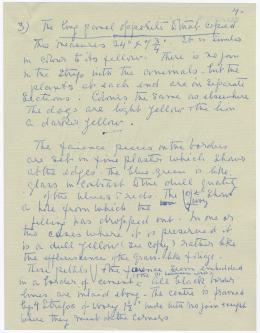 4.
3) The long panel opposite to that copied.
This measures 24" x 7 3/4. It is similar
in colour to its fellow. There is no join
in the strip with the animals. but the
plants at each end are on separate
sections. Colours the same as elsewhere
The dogs are light yellow & the lion
a darker yellow.
The faience pieces on the borders
are set in fine plaster which shows
at the edges. The blue green is like
glass in contrast to the dull quality
of the blues & reds. The show
a hole from which the
filling has dropped out. In one or
two cases where it is preserved it
is a dull yellow (see copy) rather like
the efflorescence of the grass-like foliage.
These petals & the embedded
in a border of cement. All black border
lines are inlaid ebony. The centre is framed
by 4 strips of ivory 1/2" wide with no join except
where they meet at the corners